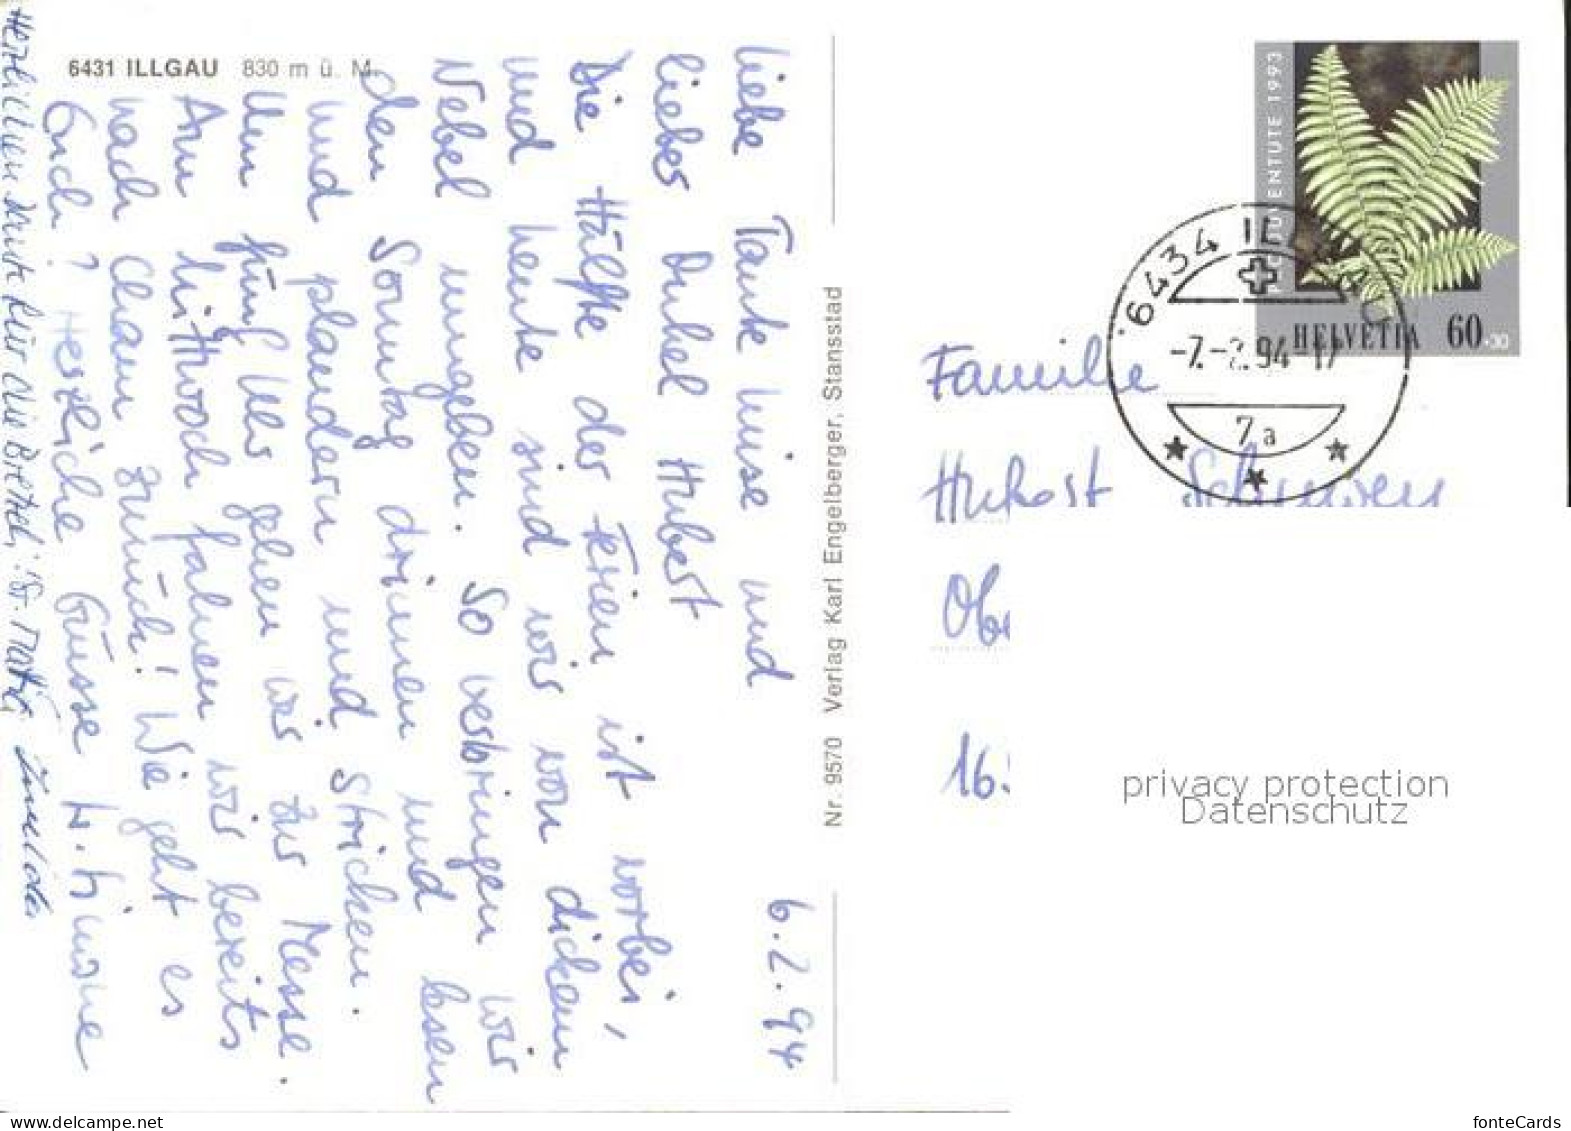 6431 ILLGAU 830 m ü. M.
6.2.94
Liebe Tante Luise und
lieber Onkel Hubert
Die Hälfte der Ferien ist vorbei,
und heute sind wir von dickem
Nebel umgeben. So verbringen wir
den Sonntag drinnen und lesen
und plaudern und stricken.
Um fünf Uhr gehen wir zur Messe.
Am Mittwoch fahren wir bereits
nach Cham zurück! Wie geht es
Euch? Herzliche Grüsse
Herzlichen Dank für die
Nr. 9570 Verlag Karl Engelberger, Stansstad
PRO JUVENTUTE 1993
HELVETIA 60+30
6434 ILLGAU
-7.-2.94-17
7a
Familie
Hubert
16
privacy protection
Datenschutz
fonteCards